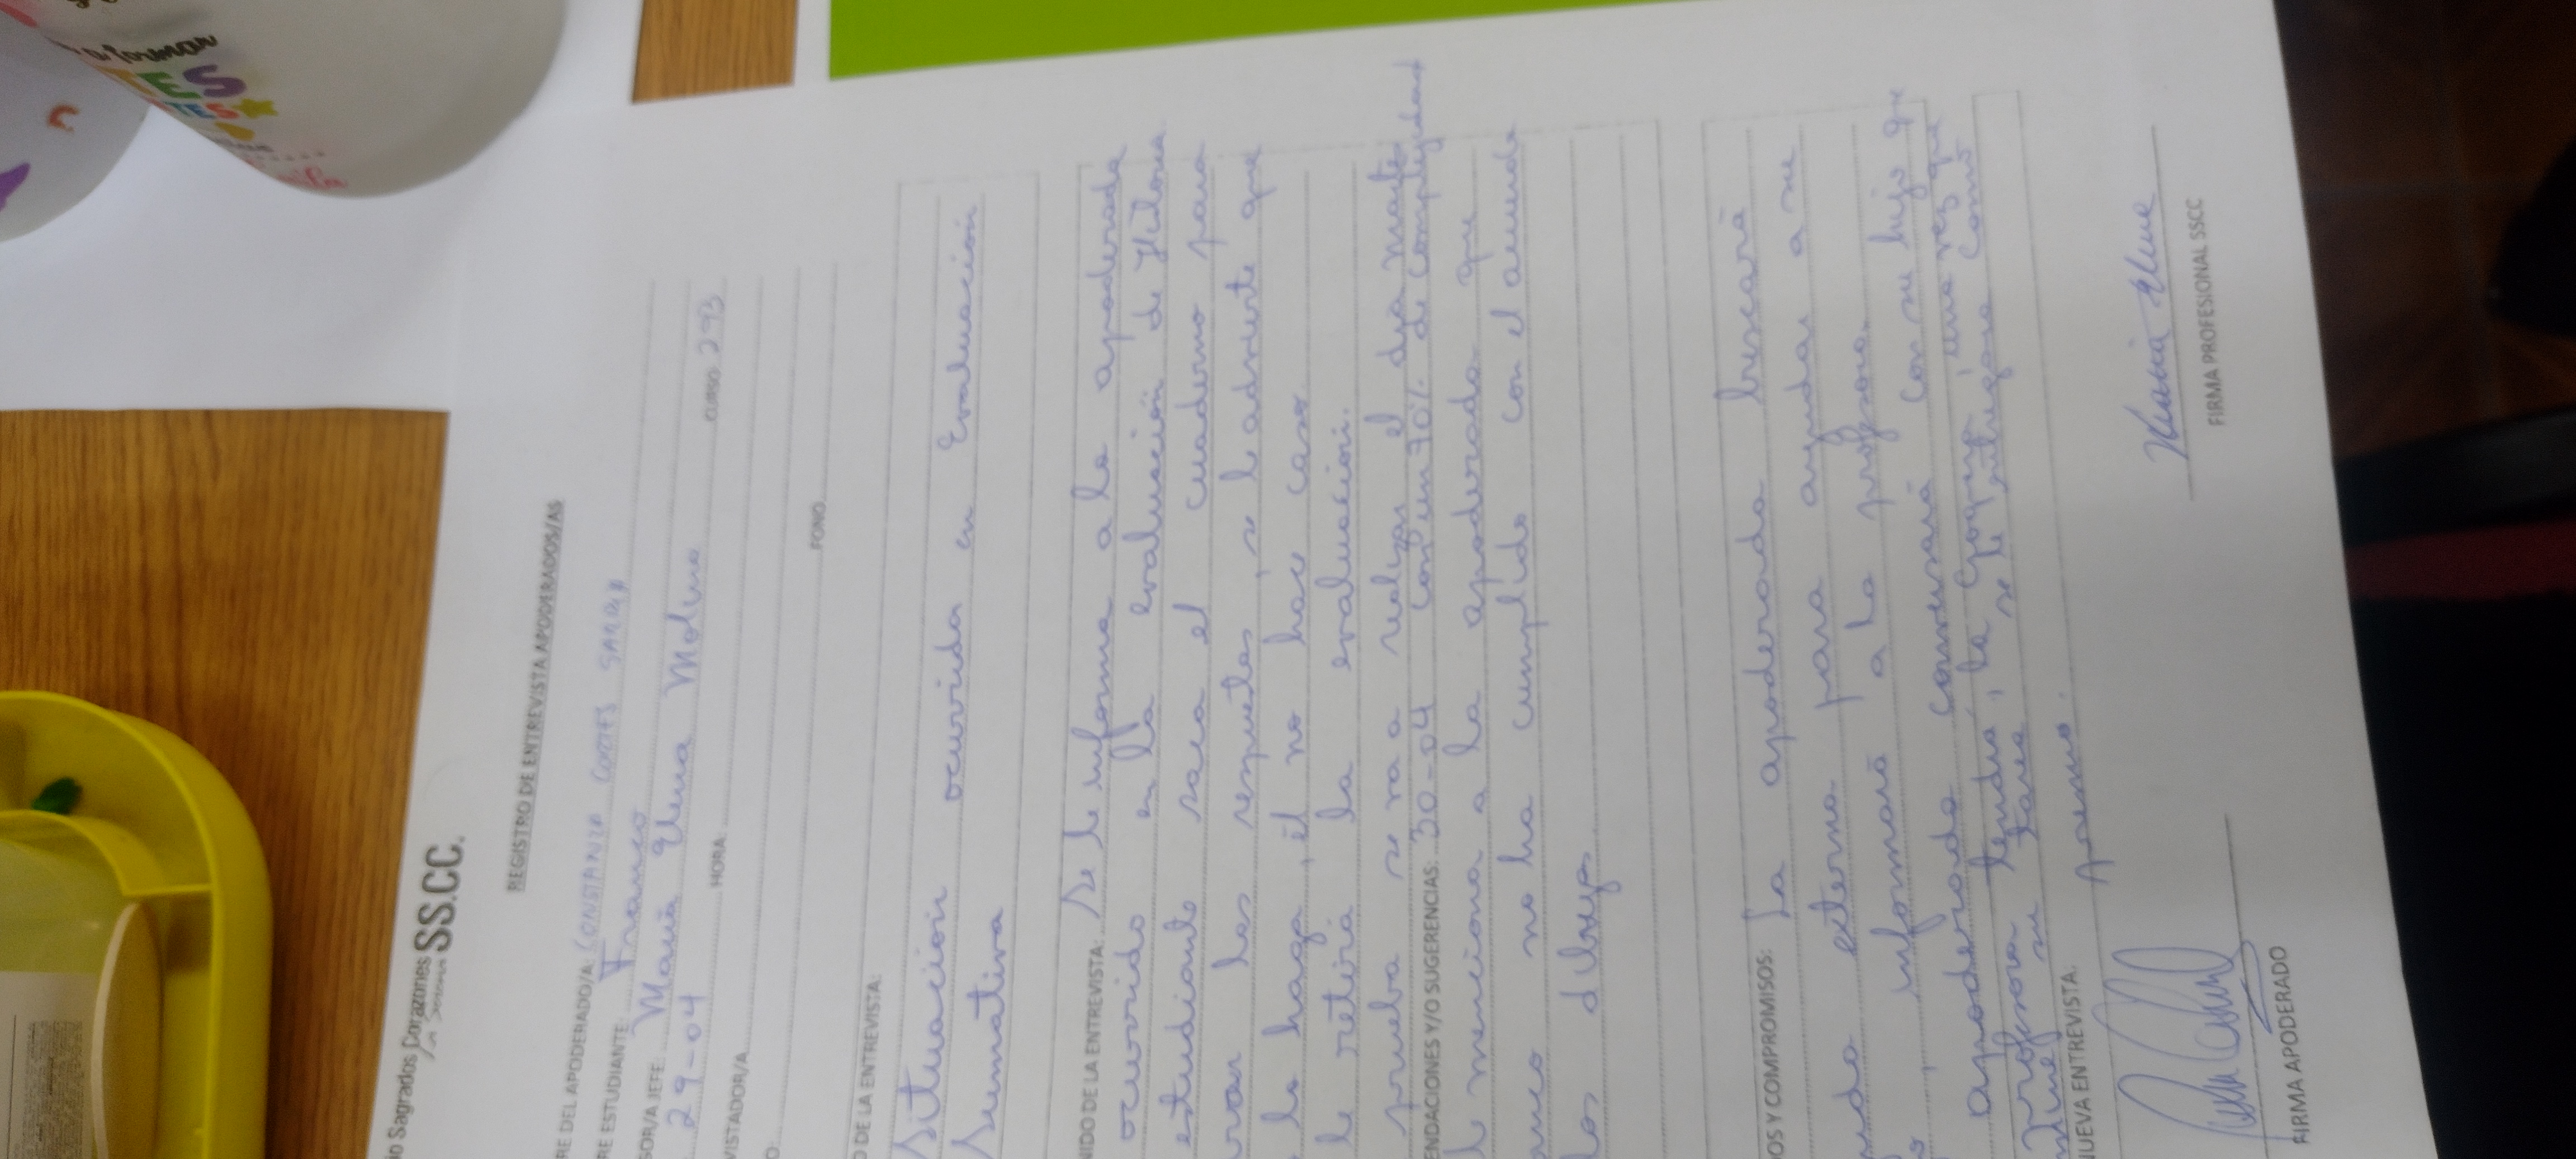 a formar
ES
TES
io Sagrados Corazones SS.CC.
REGISTRO DE ENTREVISTA APODERADOS/AS
RE DEL APODERADO/A: CONSTANZA CORTES
RE ESTUDIANTE: Franco
SOR/A JEFE: María Elena Molina CURSO: 2º3
29-04 HORA
VISTADOR/A
O: FONO
O DE LA ENTREVISTA:
Situación ocurrida en Evaluación
Sumativa
NIDO DE LA ENTREVISTA: Se le informa a la apoderada
ocurrido en la evaluación de Historia
estudiante saca el cuaderno para
las respuestas, se le advierte que
lo haga, él no hace caso.
le retira la evaluación.
prueba se va a realizar el día martes
ENDACIONES Y/O SUGERENCIAS: 30-04 con un 70% de complejidad
le menciona a la apoderada que
no ha cumplido con el acuerdo
los dibujos
OS Y COMPROMISOS: La apoderada buscará
externa para ayudar a su
, informará a la profesora.
apoderada conversará con su hijo que
profesora tendrá la una vez que
su tarea se le entregará como
NUEVA ENTREVISTA: premio.
FIRMA APODERADO
María Elena
FIRMA PROFESIONAL SSCC